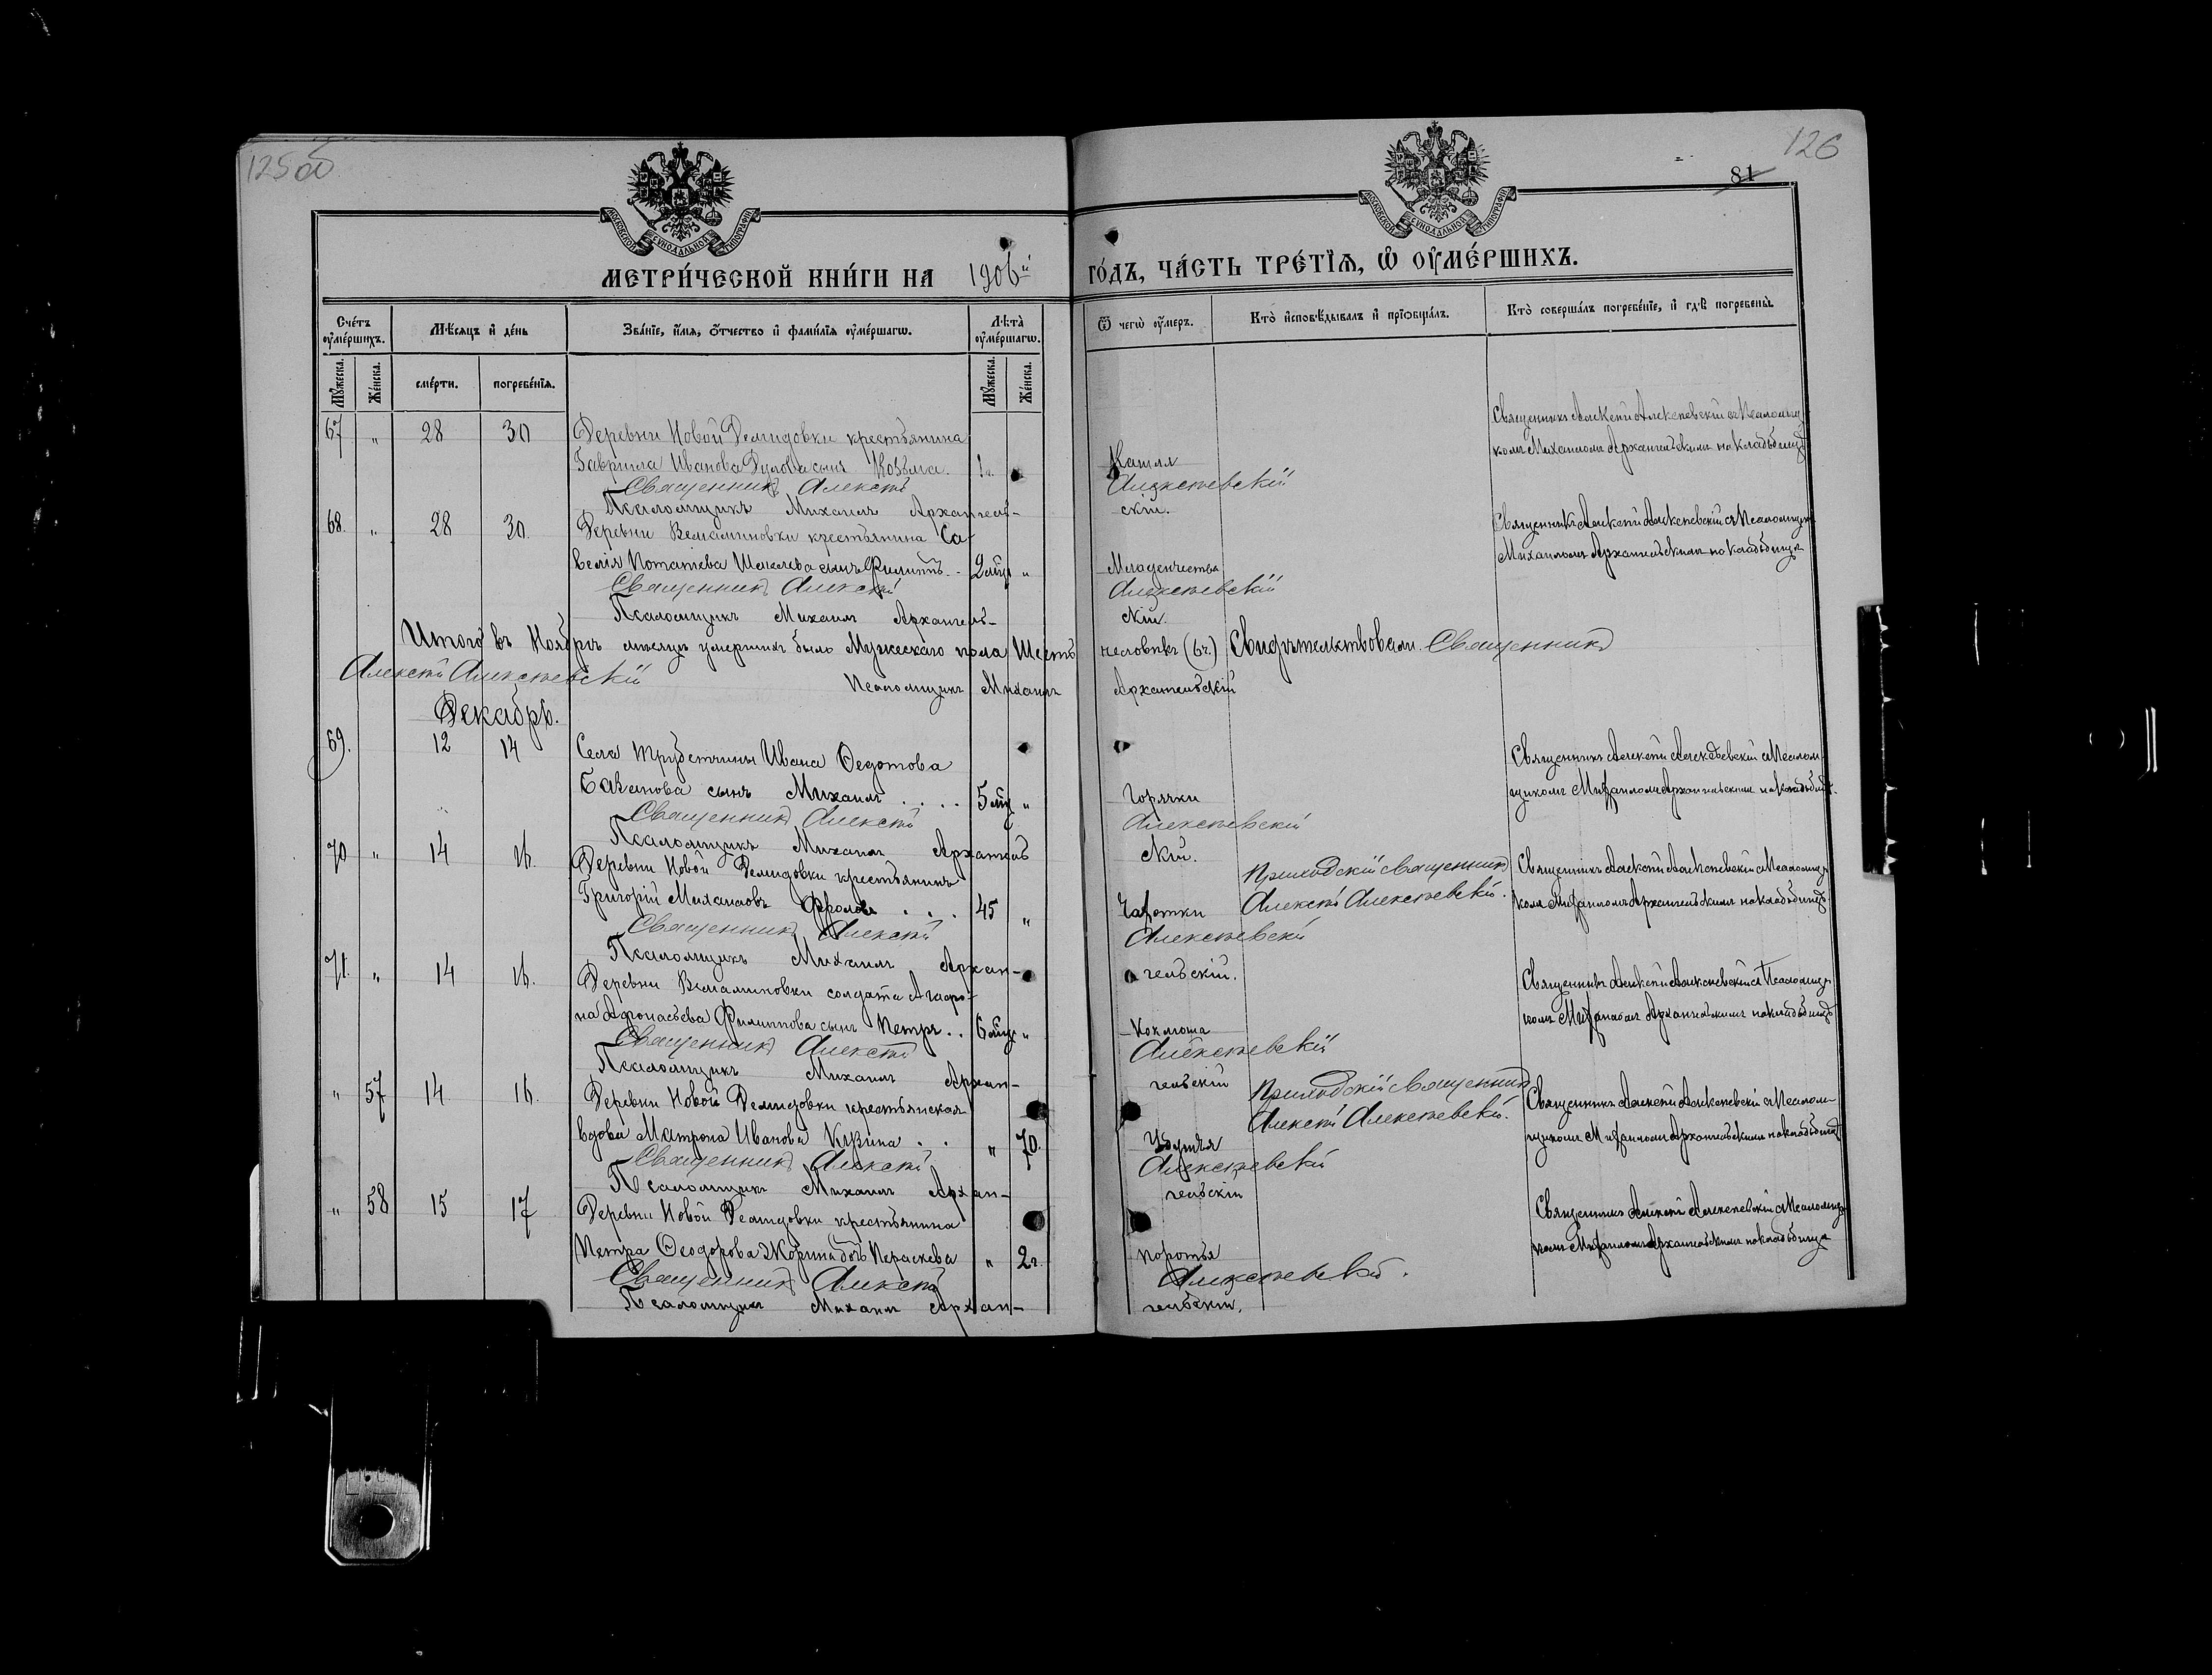 125об
126
81
МОСКОВСКОЙ СѴНОДАЛЬНОЙ ТИПОГРАФІИ
МОСКОВСКОЙ СѴНОДАЛЬНОЙ ТИПОГРАФІИ
МЕТРИ́ЧЕСКОЙ КНИ́ГИ НА 1906й ГО́ДЪ, ЧА́СТЬ ТРЕ́ТІѦ, Ѡ҆ ОУ҆МЕ́РШИХЪ.
Сче́тъ оу҆ме́ршихъ.
Мѣ́сяцъ и҆ де́нь
Зва́нїе, и҆́мя, ѻ҆́тчество и҆ фами́лїя оу҆ме́ршагѡ.
Лѣта̀ оу҆ме́ршагѡ.
Ѿ чегѡ̀ оу҆́меръ.
Кто̀ и҆сповѣ́дывалъ и҆ прїѻбща́лъ.
Кто̀ соверша́лъ погребе́нїе, и҆ гдѣ̀ погребены̀.
Мꙋ́жеска. Же́нска. сме́рти. погребе́нїя. Мꙋ́жеска. Же́нска.
67 " 28 30 Деревни Новой Демидовки крестьянина
Гавриила Иванова сынъ Козьма. 1 г. Кашля
Священникъ Алексѣй Алексѣевскій съ Псаломщи
комъ Михаиломъ Архангельскимъ на кладбищѣ
Священникъ Алексѣй Алексѣевскій
Псаломщикъ Михаилъ Архангель-
скій.
68. " 28 30. Деревни Вельяминовки крестьянина Са-
велія Потапіева сынъ Филиппъ.. 2 мѣс " Младенчества
Священникъ Алексѣй Алексѣевскій съ Псаломщик.
Михаиломъ Архангельскимъ на кладбищѣ
Священникъ Алексѣй Алексѣевскій
Псаломщикъ Михаилъ Архангель-
скій.
Итого въ Ноябрѣ мѣсяцѣ умершихъ было Мужескаго пола Шесть человѣкъ (6 ч.) Свидѣтельствовали. Священникъ
Алексѣй Алексѣевскій Псаломщикъ Михаилъ Архангельскій
Декабрь.
69. 12 14 Села Трубетчины Ивана Ѳедотова
сынъ Михаилъ . . . . 5 мѣс " Горячки
Священникъ Алексѣй Алексѣевскій съ Псалом-
щикомъ Михаиломъ Архангельскимъ на кладбищѣ.
Священникъ Алексѣй Алексѣевскій
Псаломщикъ Михаилъ Архангель
скій.
70 " 14 16. Деревни Новой Демидовки крестьянинъ
Григорій Михайловъ Фроловъ . . . 45 " Чахотки
Приходскій Священникъ
Алексѣй Алексѣевскій.
Священникъ Алексѣй Алексѣевскій съ Псаломщи-
комъ Михаиломъ Архангельскимъ на кладбищѣ.
Священникъ Алексѣй Алексѣевскій
Псаломщикъ Михаилъ Архан-
гельскій.
71. " 14 16. Деревни Вельяминовки солдата Агафо-
на Афонасьева Филиппова сынъ Петръ . . 6 мѣс " Коклюша
Священникъ Алексѣй Алексѣевскій съ Псаломщи-
комъ Михаиломъ Архангельскимъ на кладбищѣ
Священникъ Алексѣй Алексѣевскій
Псаломщикъ Михаилъ Архан-
гельскій
" 57 14 16. Деревни Новой Демидовки крестьянская
вдова Матрона Иванова Курина . . " 70.
Приходскій Священникъ
Алексѣй Алексѣевскій.
Священникъ Алексѣй Алексѣевскій съ Псалом-
щикомъ Михаиломъ Архангельскимъ на кладбищѣ
Священникъ Алексѣй Алексѣевскій
Псаломщикъ Михаилъ Архан-
гельскій
" 58 15 17 Деревни Новой Демидовки крестьянина
Петра Ѳеодорова дочь Параскева " 2 г.
Священникъ Алексѣй Алексѣевскій съ Псаломщи-
комъ Михаиломъ Архангельскимъ на кладбищѣ
Священникъ Алексѣй Алексѣевскій.
Псаломщикъ Михаилъ Архан-
гельскій.